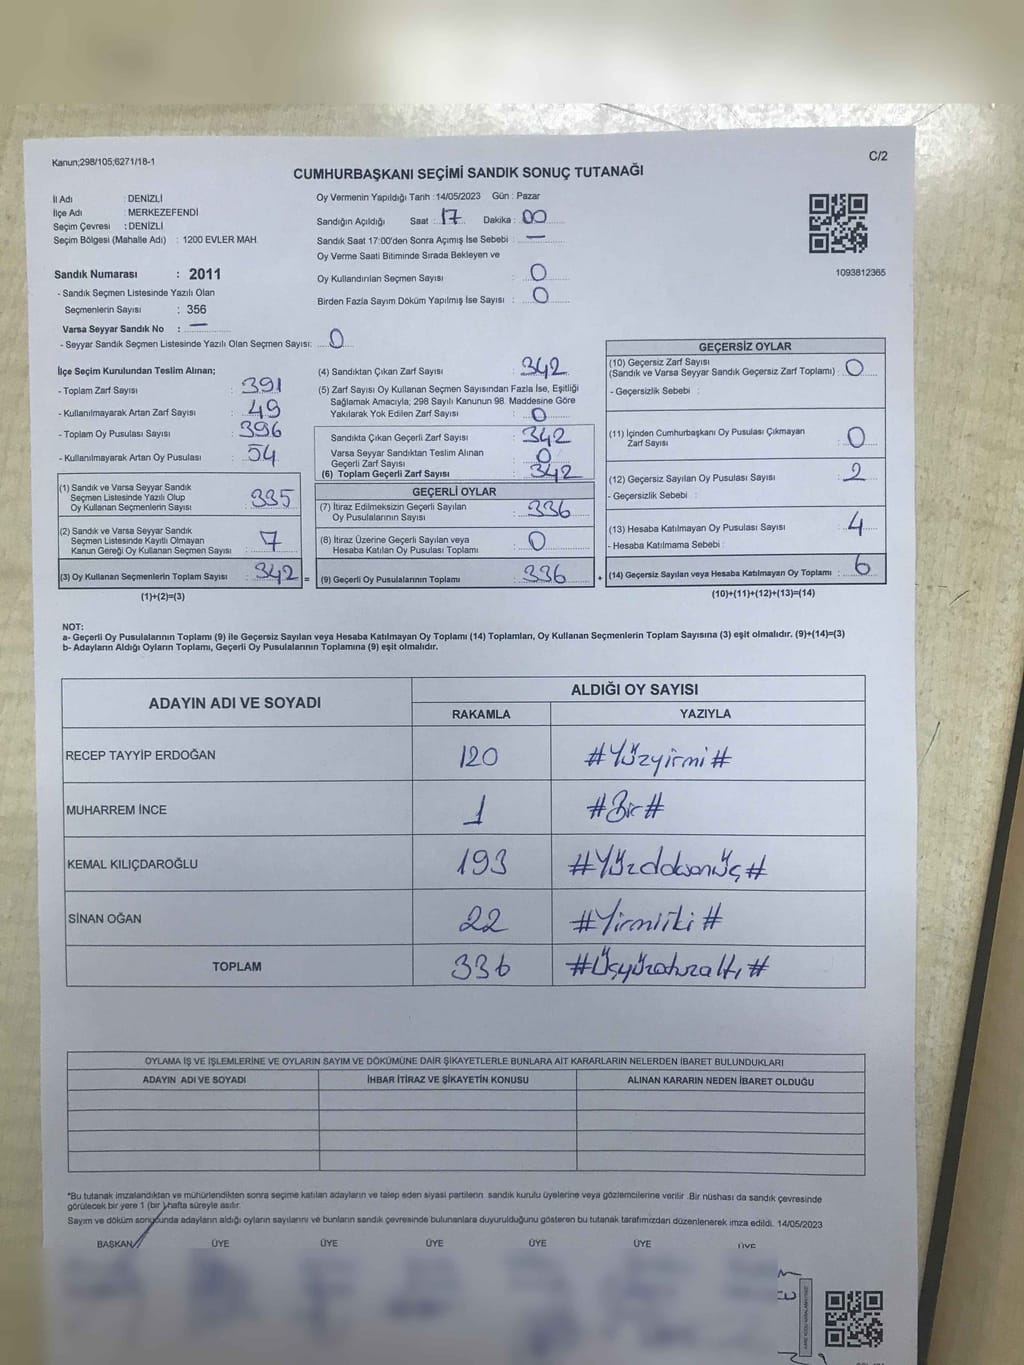 Kanun;298/105;6271/18-1
C/2
CUMHURBAŞKANI SEÇİMİ SANDIK SONUÇ TUTANAĞI
İl Adı : DENİZLİ
İlçe Adı : MERKEZEFENDİ
Seçim Çevresi : DENİZLİ
Seçim Bölgesi (Mahalle Adı) : 1200 EVLER MAH.
Oy Vermenin Yapıldığı Tarih :14/05/2023 Gün : Pazar
Sandığın Açıldığı Saat : 17 Dakika : 00
Sandık Saat 17:00'den Sonra Açımış İse Sebebi : —
Oy Verme Saati Bitiminde Sırada Bekleyen ve
Oy Kullandırılan Seçmen Sayısı : 0
Birden Fazla Sayım Döküm Yapılmış İse Sayısı : 0
1093812365
Sandık Numarası : 2011
- Sandık Seçmen Listesinde Yazılı Olan
Seçmenlerin Sayısı : 356
Varsa Seyyar Sandık No : —
- Seyyar Sandık Seçmen Listesinde Yazılı Olan Seçmen Sayısı: 0
İlçe Seçim Kurulundan Teslim Alınan;
- Toplam Zarf Sayısı : 391
- Kullanılmayarak Artan Zarf Sayısı : 49
- Toplam Oy Pusulası Sayısı : 396
- Kullanılmayarak Artan Oy Pusulası : 54
(1) Sandık ve Varsa Seyyar Sandık
Seçmen Listesinde Yazılı Olup
Oy Kullanan Seçmenlerin Sayısı : 335
(2) Sandık ve Varsa Seyyar Sandık
Seçmen Listesinde Kayıtlı Olmayan
Kanun Gereği Oy Kullanan Seçmen Sayısı : 7
(3) Oy Kullanan Seçmenlerin Toplam Sayısı : 342 =
(1)+(2)=(3)
(4) Sandıktan Çıkan Zarf Sayısı : 342
(5) Zarf Sayısı Oy Kullanan Seçmen Sayısından Fazla İse, Eşitliği
Sağlamak Amacıyla; 298 Sayılı Kanunun 98. Maddesine Göre
Yakılarak Yok Edilen Zarf Sayısı : 0
Sandıkta Çıkan Geçerli Zarf Sayısı : 342
Varsa Seyyar Sandıktan Teslim Alınan
Geçerli Zarf Sayısı : 0
(6) Toplam Geçerli Zarf Sayısı : 342
GEÇERLİ OYLAR
(7) İtiraz Edilmeksizin Geçerli Sayılan
Oy Pusulalarının Sayısı : 336
(8) İtiraz Üzerine Geçerli Sayılan veya
Hesaba Katılan Oy Pusulası Toplamı : 0
(9) Geçerli Oy Pusulalarının Toplamı : 336 +
GEÇERSİZ OYLAR
(10) Geçersiz Zarf Sayısı
(Sandık ve Varsa Seyyar Sandık Geçersiz Zarf Toplamı) : 0
- Geçersizlik Sebebi :
(11) İçinden Cumhurbaşkanı Oy Pusulası Çıkmayan
Zarf Sayısı : 0
(12) Geçersiz Sayılan Oy Pusulası Sayısı : 2
- Geçersizlik Sebebi :
(13) Hesaba Katılmayan Oy Pusulası Sayısı : 4
- Hesaba Katılmama Sebebi :
(14) Geçersiz Sayılan veya Hesaba Katılmayan Oy Toplamı : 6
(10)+(11)+(12)+(13)=(14)
NOT:
a- Geçerli Oy Pusulalarının Toplamı (9) ile Geçersiz Sayılan veya Hesaba Katılmayan Oy Toplamı (14) Toplamları, Oy Kullanan Seçmenlerin Toplam Sayısına (3) eşit olmalıdır. (9)+(14)=(3)
b- Adayların Aldığı Oyların Toplamı, Geçerli Oy Pusulalarının Toplamına (9) eşit olmalıdır.
ADAYIN ADI VE SOYADI
ALDIĞI OY SAYISI
RAKAMLA YAZIYLA
RECEP TAYYİP ERDOĞAN 120 #Yüzyirmi#
MUHARREM İNCE 1 #Bir#
KEMAL KILIÇDAROĞLU 193 #Yüzdoksanüç#
SİNAN OĞAN 22 #Yirmiiki#
TOPLAM 336 #Üçyüzotuzaltı#
OYLAMA İŞ VE İŞLEMLERİNE VE OYLARIN SAYIM VE DÖKÜMÜNE DAİR ŞİKAYETLERLE BUNLARA AİT KARARLARIN NELERDEN İBARET BULUNDUKLARI
ADAYIN ADI VE SOYADI İHBAR İTİRAZ VE ŞİKAYETİN KONUSU ALINAN KARARIN NEDEN İBARET OLDUĞU
*Bu tutanak imzalandıktan ve mühürlendikten sonra seçime katılan adayların ve talep eden siyasi partilerin sandık kurulu üyelerine veya gözlemcilerine verilir .Bir nüshası da sandık çevresinde
görülecek bir yere 1 (bir ) hafta süreyle asılır.
Sayım ve döküm sonucunda adayların aldığı oyların sayılarını ve bunların sandık çevresinde bulunanlara duyurulduğunu gösteren bu tutanak tarafımızdan düzenlenerek imza edildi. 14/05/2023
BAŞKAN ÜYE ÜYE ÜYE ÜYE ÜYE ÜYE